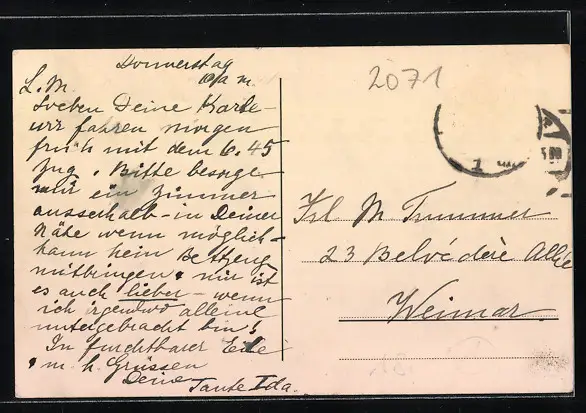 Donnerstag
10 a m.
L. M.
Soeben Deine Karte -
wir fahren morgen
früh mit dem 6.45
Zug. Bitte besorge
mir ein Zimmer
ausserhalb - in Deiner
Nähe wenn möglich -
kann kein Bettzeug
mitbringen, mir ist
es auch lieber - wenn
ich irgendwo alleine
untergebracht bin!
In furchtbarer Eile
m. h. Grüssen
Deine
Tante Ida.
2071
Frl. M. Trummer
23 Belvédère Allée
Weimar.